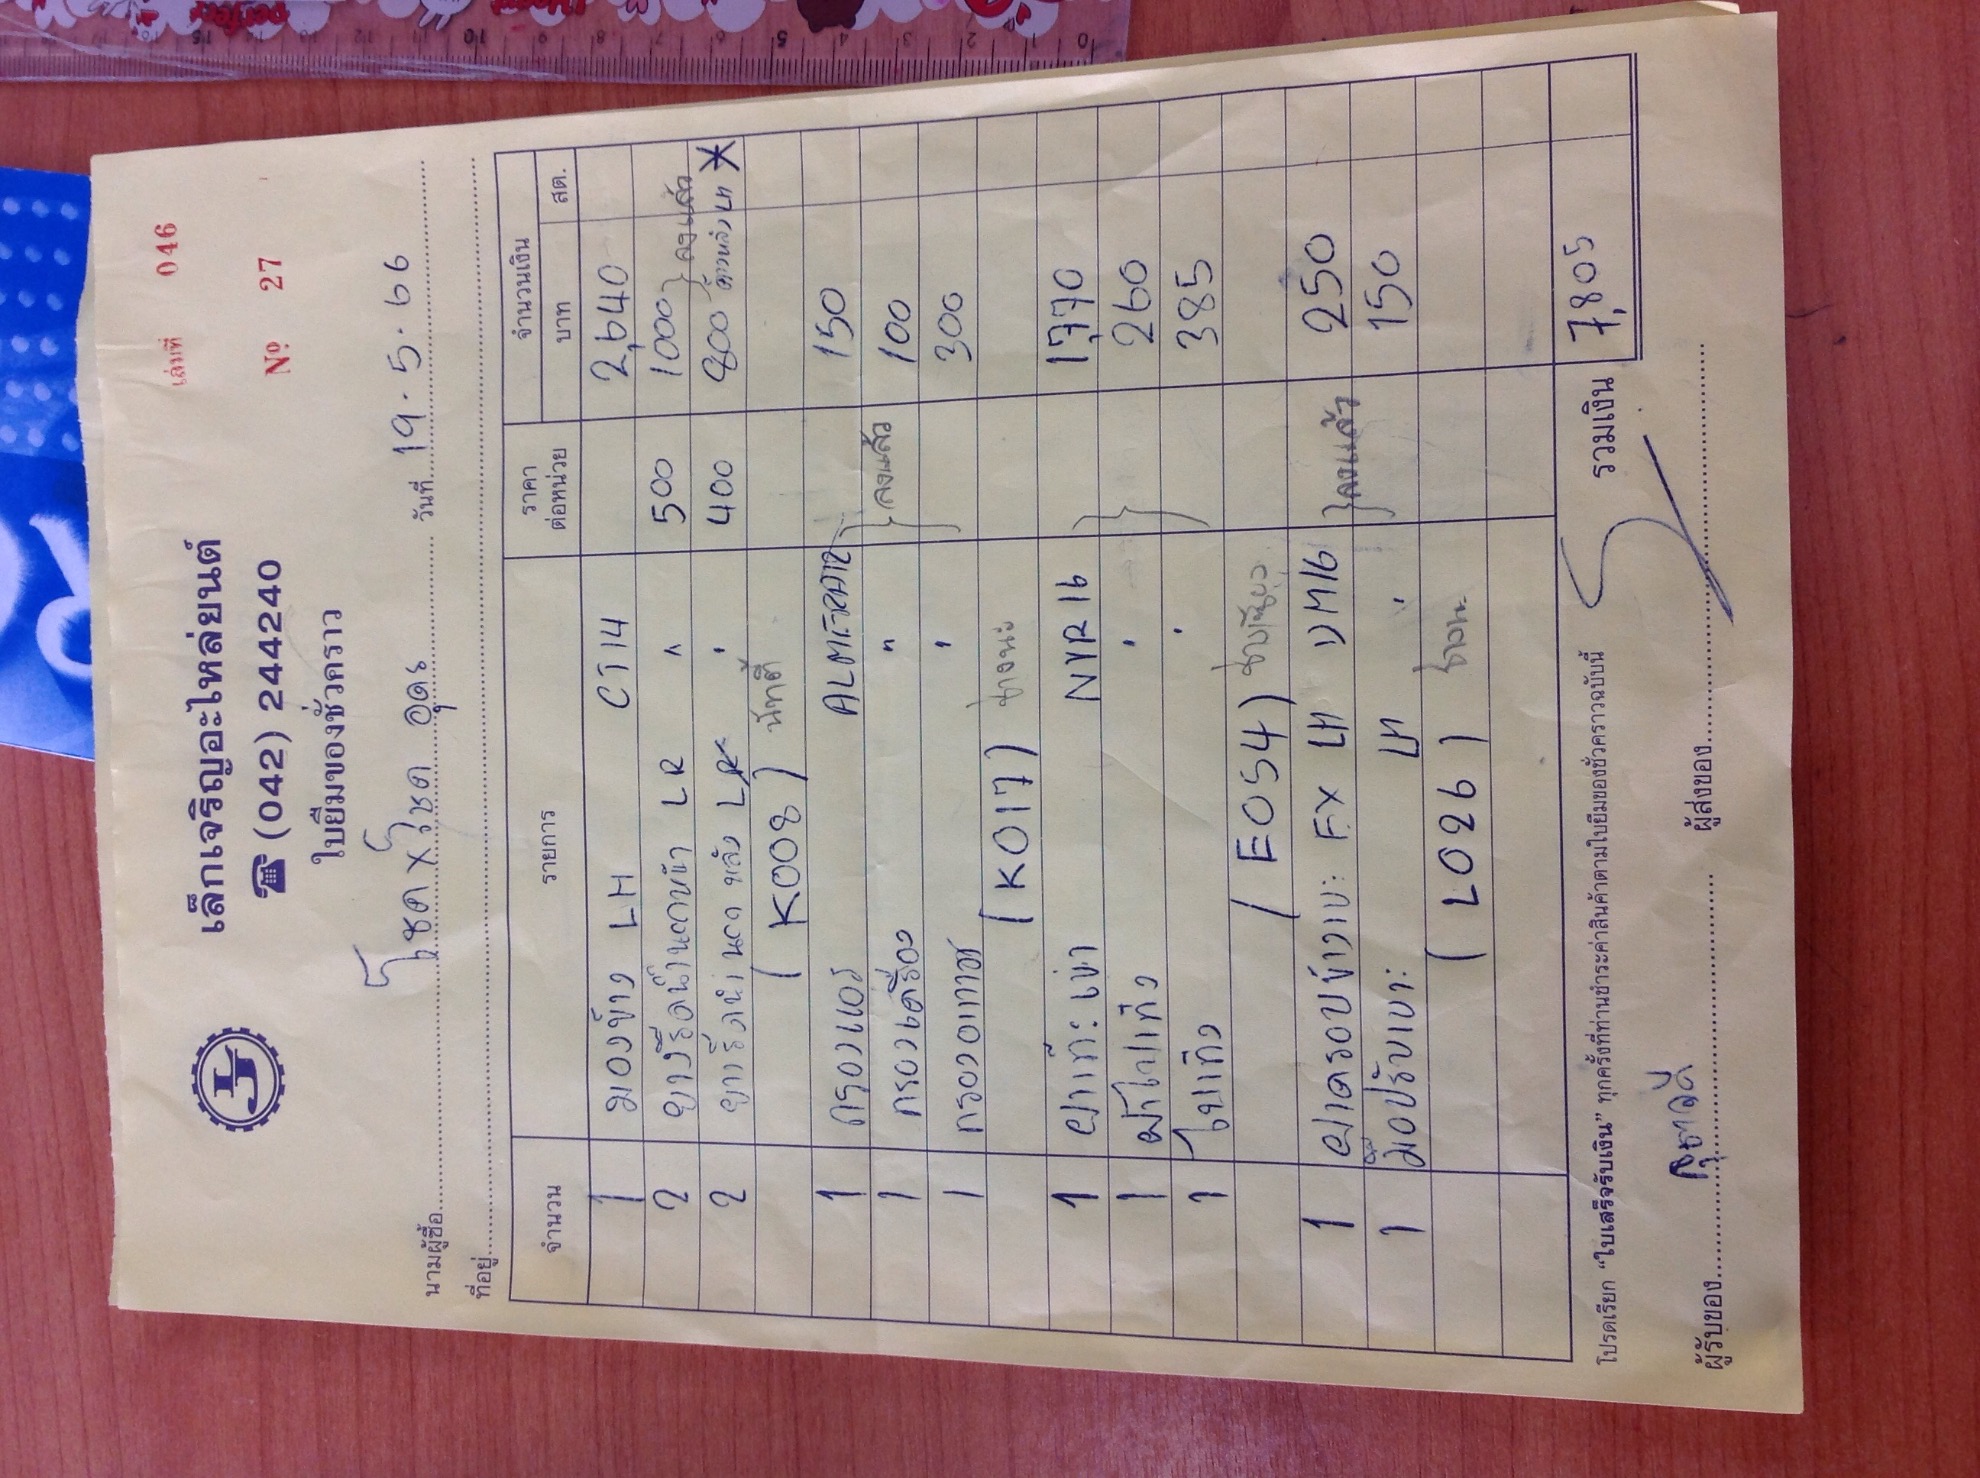 เล่มที่ 046
เล็กเจริญอะไหล่ยนต์
☎ (042) 244240
Nº 27
ใบยืมของชั่วคราว
นามผู้ซื้อ โชค x โชค อุดร วันที่ 19.5.66
ที่อยู่
จำนวน รายการ ราคาต่อหน่วย จำนวนเงิน
บาท สต.
1 มองข้าง LH CT14 2,640
2 ยางรีดน้ำนอกหน้า LR " 500 1000 } ลงแล้ว
2 ยางรีดน้ำนอกหลัง LR " 400 800
(K008)
1 กรองแอร์ ALMERA12 150
1 กรองเครื่อง " 100 } ลงแล้ว
1 กรองอากาศ " 300
(K017) ช่างนะ
1 NYR16 1,770
1 " 260
1 ใบเกิง " 385
(E054)
1 ฝาครอบข้างเบาะ FX LH DM16 250
1 มือปรับเบาะ LH " 150 } ลงแล้ว
(L026) ช่างนะ
รวมเงิน 7,805
โปรดเรียก "ใบเสร็จรับเงิน" ทุกครั้งที่ท่านชำระค่าสินค้าตามใบยืมของชั่วคราวฉบับนี้
ผู้รับของ ผู้ส่งของ